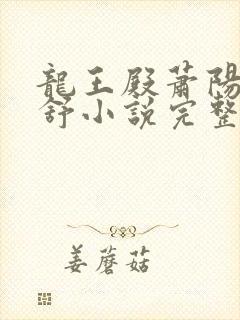 龍王殿蕭陽
舒小說完整
姜蘑菇